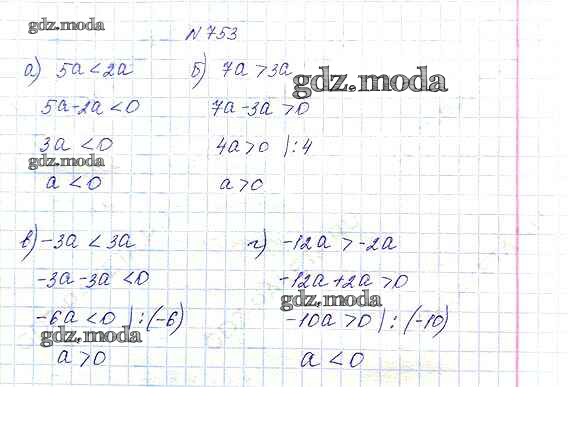 gdz.moda
№753
а) 5a < 2a
5a-2a < 0
3a < 0
gdz.moda
a < 0
б) 7a > 3a
gdz.moda
7a-3a > 0
4a > 0 | : 4
a > 0
в) -3a < 3a
-3a-3a < 0
-6a < 0 | : (-6)
gdz.moda
a > 0
г) -12a > -2a
-12a+2a > 0
gdz.moda
-10a > 0 | : (-10)
a < 0